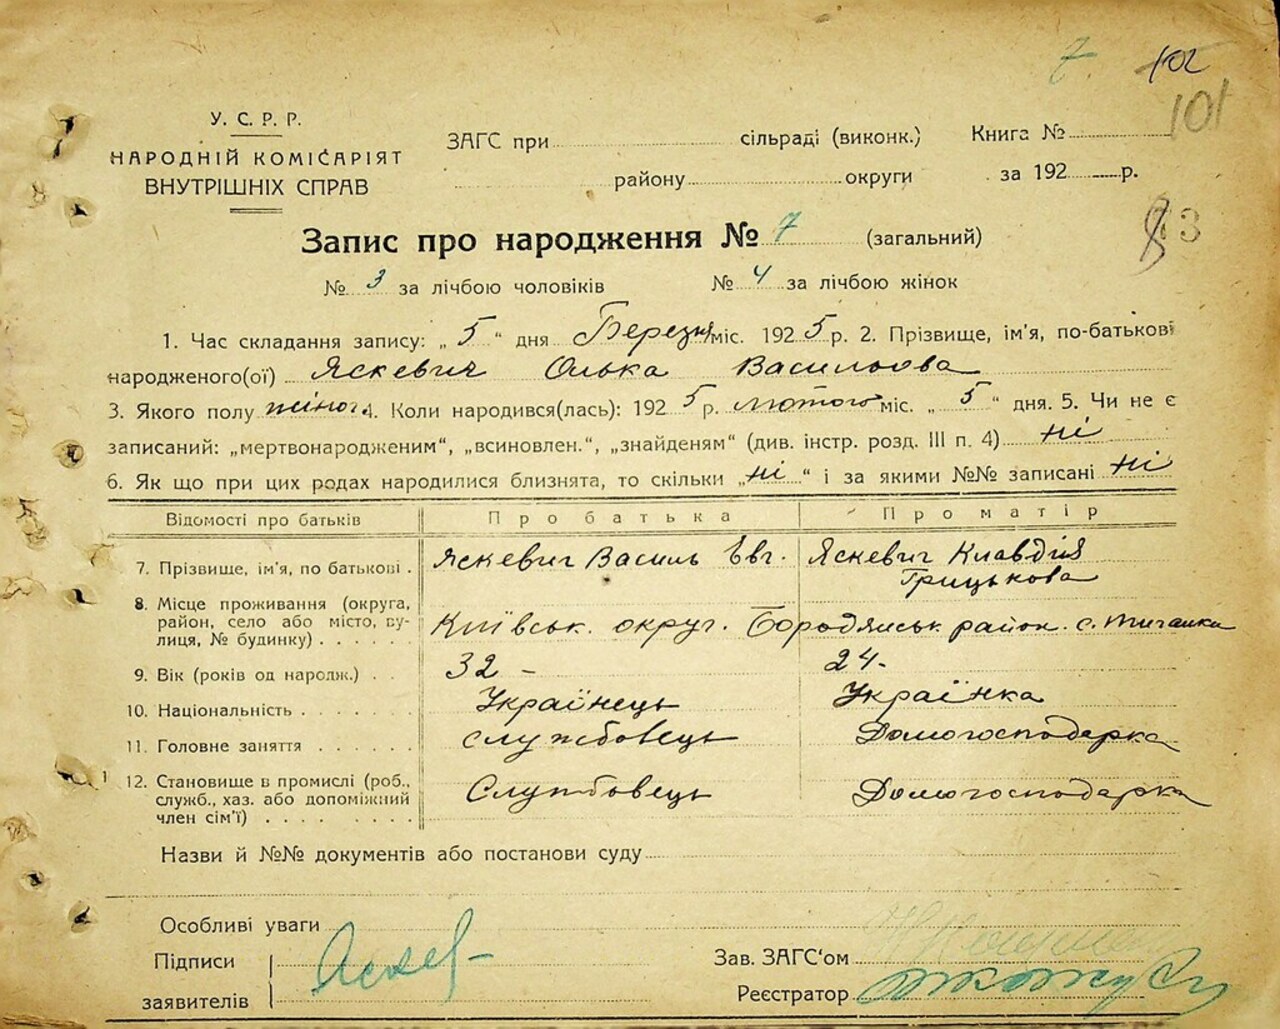 7. 102
101
У. С. Р. Р.
НАРОДНІЙ КОМІСАРІЯТ
ВНУТРІШНІХ СПРАВ
ЗАГС при сільраді (виконк.) Книга №
району округи за 192 р.
83
Запис про народження № 7 (загальний)
№ 3 за лічбою чоловіків № 4 за лічбою жінок
1. Час складання запису: „ 5 “ дня Березня міс. 192 5 р. 2. Прізвище, ім'я, по-батькові
народженого(ої) Яскевич Олька Васильова
3. Якого полу жіноч. 4. Коли народився(лась): 192 5 р. лютого міс. „ 5 “ дня. 5. Чи не є
записаний: „мертвонародженим“, „всиновлен.“, „знайденям“ (див. інстр. розд. III п. 4) ні
6. Як що при цих родах народилися близнята, то скільки „ ні “ і за якими №№ записані ні
Відомості про батьків Про батька Про матір
7. Прізвище, ім'я, по батькові . Яскевич Василь Євг. Яскевич Клавдія
Грицькова
8. Місце проживання (округа,
район, село або місто, ву-
лиця, № будинку) . . . . . Київськ. округ. Бородянськ район. с.
9. Вік (років од народж.) . . 32 - 24-
10. Національність . . . . . . Українець Українка
11. Головне заняття . . . . . . службовець Домогосподарка
12. Становище в промислі (роб.,
служб., хаз. або допоміжний
член сім'ї) . . . . . . . . Службовець Домогосподарка
Назви й №№ документів або постанови суду
Особливі уваги
Підписи
заявителів
Яскев
Зав. ЗАГС‘ом
Реєстратор